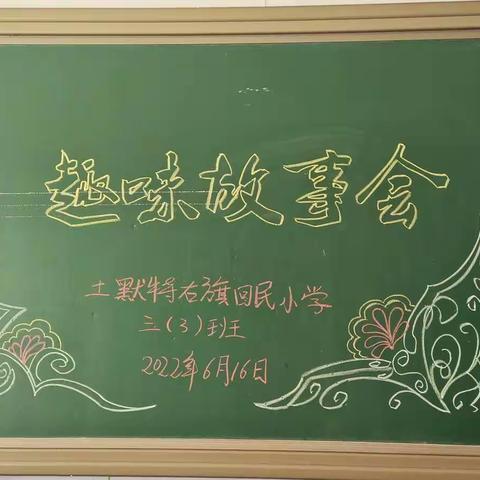 趣味故事会
土默特右旗回民小学
三(3)班
2022年6月16日